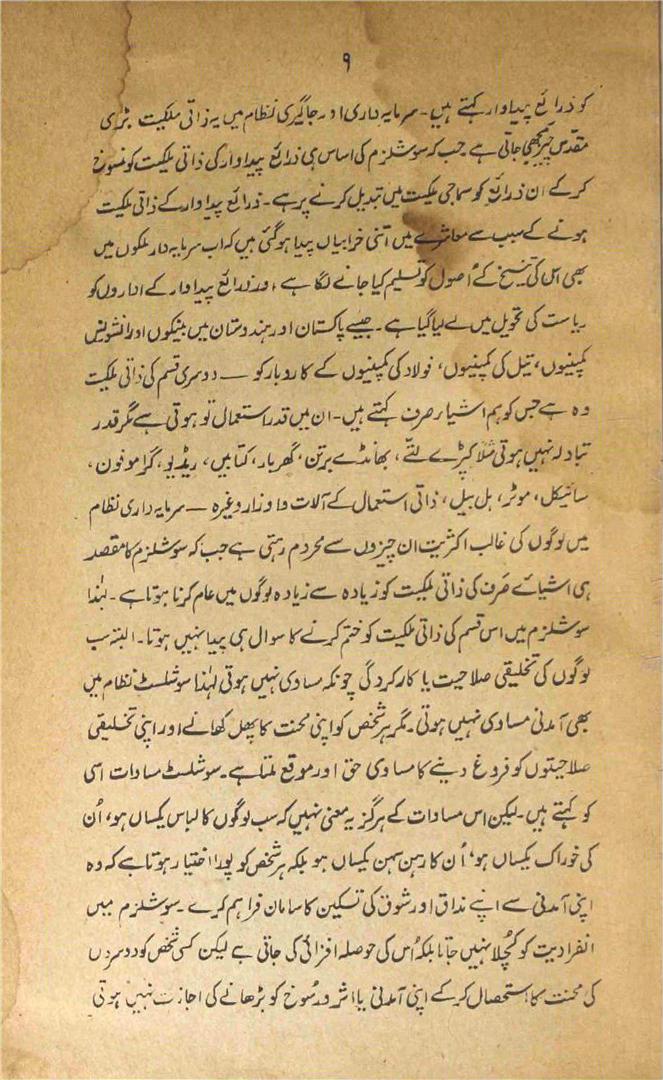 ۹
کو ذرائع پیداوار کہتے ہیں۔ سرمایہ داری اور جاگیری نظام میں یہ ذاتی ملکیت بڑی
مقدس چیز سمجھی جاتی ہے جب کہ سوشلزم کی اساس ہی ذرائع پیداوار کی ذاتی ملکیت کو منسوخ
کر کے ان ذرائع کو سماجی ملکیت میں تبدیل کرنے پر ہے۔ ذرائع پیداوار کے ذاتی ملکیت
ہونے کے سبب سے معاشرے میں اتنی خرابیاں پیدا ہو گئی ہیں کہ اب سرمایہ دار ملکوں میں
بھی اس کی تنسیخ کے اُصول کو تسلیم کیا جانے لگا ہے اور ذرائع پیداوار کے اداروں کو
ریاست کی تحویل میں لے لیا گیا ہے۔ جیسے پاکستان اور ہندوستان میں بینکوں اور انشورنس
کمپنیوں، تیل کی کمپنیوں، فولاد کی کمپنیوں کے کاروبار کو — دوسری قسم کی ذاتی ملکیت
وہ ہے جس کو ہم اشیار صرف کہتے ہیں۔ ان میں قدر استعمال تو ہوتی ہے مگر قدر
تبادلہ نہیں ہوتی مثلاً کپڑے لتّے، بھانڈے برتن، گھر بار، کتابیں، ریڈیو، گراموفون،
سائیکل، موٹر، ہل بیل، ذاتی استعمال کے آلات و اوزار وغیرہ — سرمایہ داری نظام
میں لوگوں کی غالب اکثریت ان چیزوں سے محروم رہتی ہے جب کہ سوشلزم کا مقصد
ہی اشیائے صَرف کی ذاتی ملکیت کو زیادہ سے زیادہ لوگوں میں عام کرنا ہوتا ہے۔ لہٰذا
سوشلزم میں اس قسم کی ذاتی ملکیت کو ختم کرنے کا سوال ہی پیدا نہیں ہوتا۔ البتہ سب
لوگوں کی تخلیقی صلاحیت یا کارکردگی چونکہ مساوی نہیں ہوتی لہٰذا سوشلسٹ نظام میں
بھی آمدنی مساوی نہیں ہوتی۔ مگر ہر شخص کو اپنی محنت کا پھل کھانے اور اپنی تخلیقی
صلاحیتوں کو فروغ دینے کا مساوی حق اور موقع ملتا ہے۔ سوشلسٹ مساوات اسی
کو کہتے ہیں۔ لیکن اس مساوات کے ہرگز یہ معنی نہیں کہ سب لوگوں کا لباس یکساں ہو، اُن
کی خوراک یکساں ہو، اُن کا رہن سہن یکساں ہو بلکہ ہر شخص کو پورا اختیار ہوتا ہے کہ وہ
اپنی آمدنی سے اپنے مذاق اور شوق کی تسکین کا سامان فراہم کرے۔ سوشلزم میں
انفرادیت کو کُچلا نہیں جاتا بلکہ اُس کی حوصلہ افزائی کی جاتی ہے لیکن کسی شخص کو دوسروں
کی محنت کا استحصال کر کے اپنی آمدنی یا اثر و رُسوخ کو بڑھانے کی اجازت نہیں ہوتی